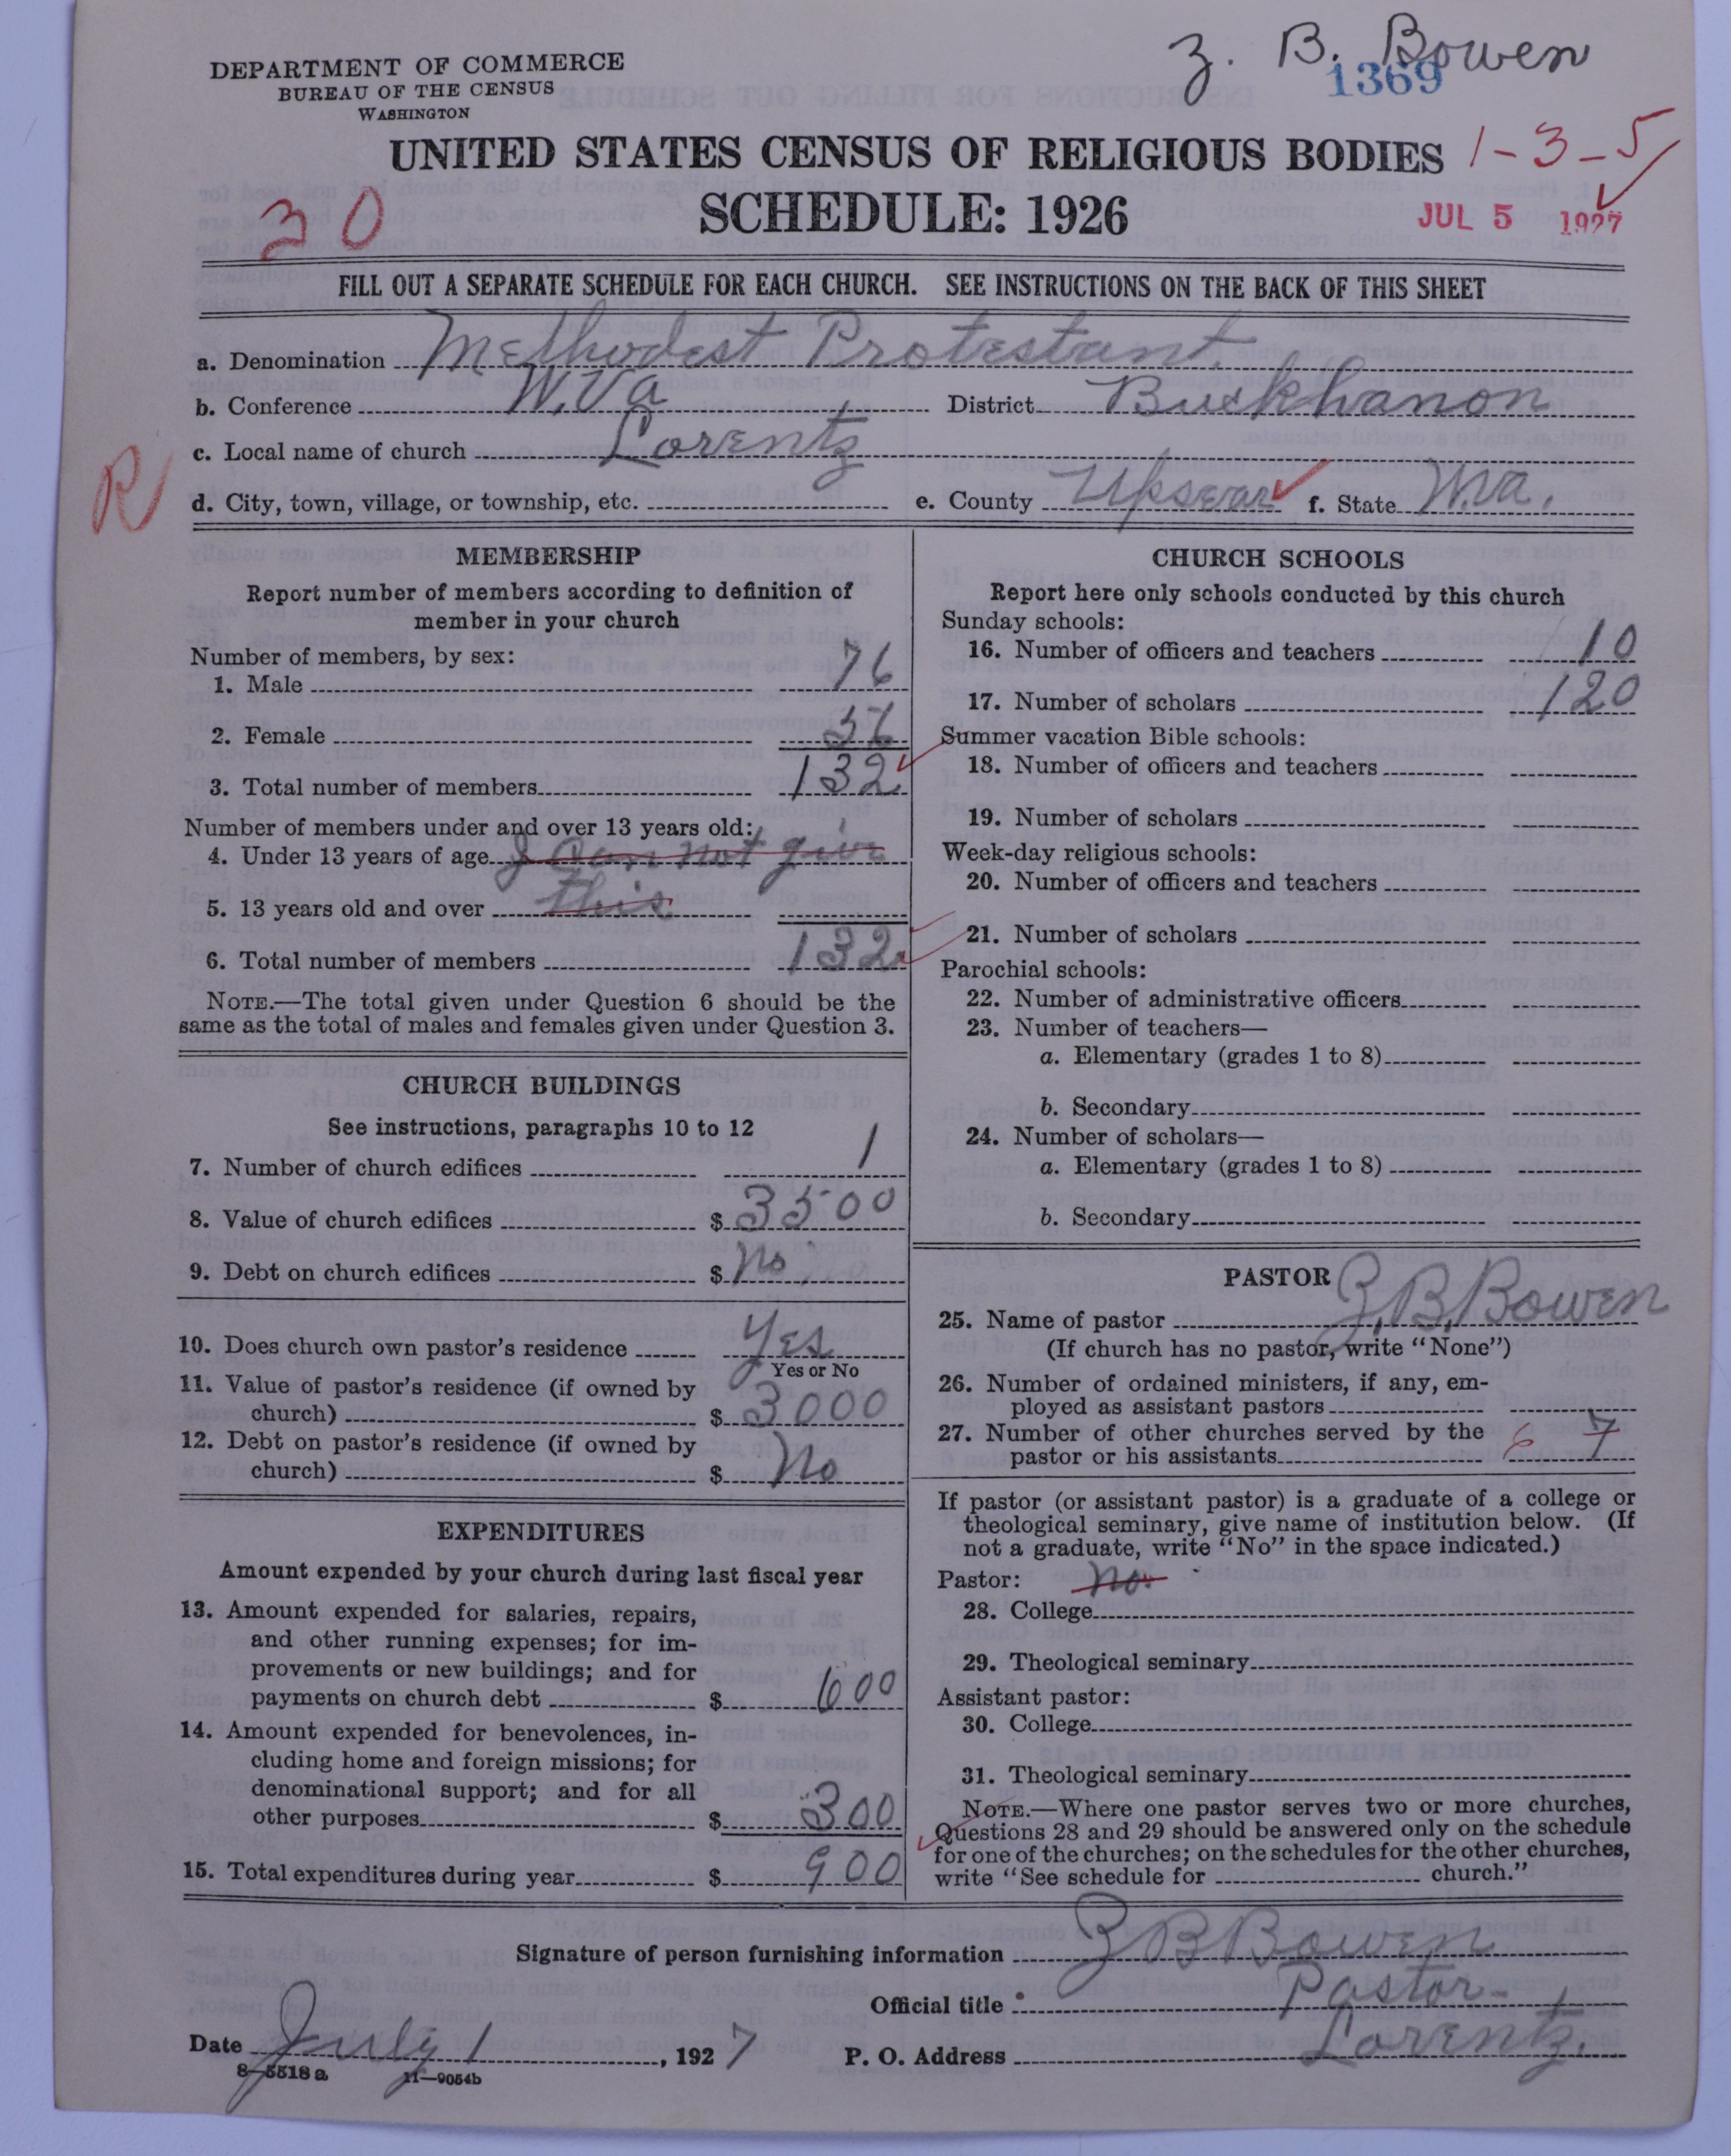 Z. B. Bowen
1369
DEPARTMENT OF COMMERCE
BUREAU OF THE CENSUS
WASHINGTON
UNITED STATES CENSUS OF RELIGIOUS BODIES
1-3-5
SCHEDULE: 1926
30
JUL 5 1927
FILL OUT A SEPARATE SCHEDULE FOR EACH CHURCH. SEE INSTRUCTIONS ON THE BACK OF THIS SHEET
a. Denomination Methodest Protestant
b. Conference W.Va District Buckhanon
c. Local name of church Lorentz
R
d. City, town, village, or township, etc. e. County Upsear f. State W.va.
MEMBERSHIP
Report number of members according to definition of
member in your church
Number of members, by sex:
1. Male 76
2. Female 56
3. Total number of members 132
Number of members under and over 13 years old:
4. Under 13 years of age I Can not give
5. 13 years old and over this
6. Total number of members 132
NOTE.—The total given under Question 6 should be the
same as the total of males and females given under Question 3.
CHURCH BUILDINGS
See instructions, paragraphs 10 to 12
7. Number of church edifices 1
8. Value of church edifices $ 3500
9. Debt on church edifices $ No
10. Does church own pastor's residence Yes
Yes or No
11. Value of pastor's residence (if owned by
church) $ 3000
12. Debt on pastor's residence (if owned by
church) $ No
EXPENDITURES
Amount expended by your church during last fiscal year
13. Amount expended for salaries, repairs,
and other running expenses; for im-
provements or new buildings; and for
payments on church debt $ 600
14. Amount expended for benevolences, in-
cluding home and foreign missions; for
denominational support; and for all
other purposes $ 300
15. Total expenditures during year $ 900
CHURCH SCHOOLS
Report here only schools conducted by this church
Sunday schools:
16. Number of officers and teachers 10
17. Number of scholars 120
Summer vacation Bible schools:
18. Number of officers and teachers
19. Number of scholars
Week-day religious schools:
20. Number of officers and teachers
21. Number of scholars
Parochial schools:
22. Number of administrative officers
23. Number of teachers—
a. Elementary (grades 1 to 8)
b. Secondary
24. Number of scholars—
a. Elementary (grades 1 to 8)
b. Secondary
PASTOR
25. Name of pastor Z.B.Bowen
(If church has no pastor, write "None")
26. Number of ordained ministers, if any, em-
ployed as assistant pastors
27. Number of other churches served by the
pastor or his assistants 6 7
If pastor (or assistant pastor) is a graduate of a college or
theological seminary, give name of institution below. (If
not a graduate, write "No" in the space indicated.)
Pastor: No.
28. College
29. Theological seminary
Assistant pastor:
30. College
31. Theological seminary
NOTE.—Where one pastor serves two or more churches,
Questions 28 and 29 should be answered only on the schedule
for one of the churches; on the schedules for the other churches,
write "See schedule for church."
Signature of person furnishing information Z B Bowen
Official title Pastor
Date July 1, 1927 P. O. Address Lorentz.
8-5518a 11-9054b